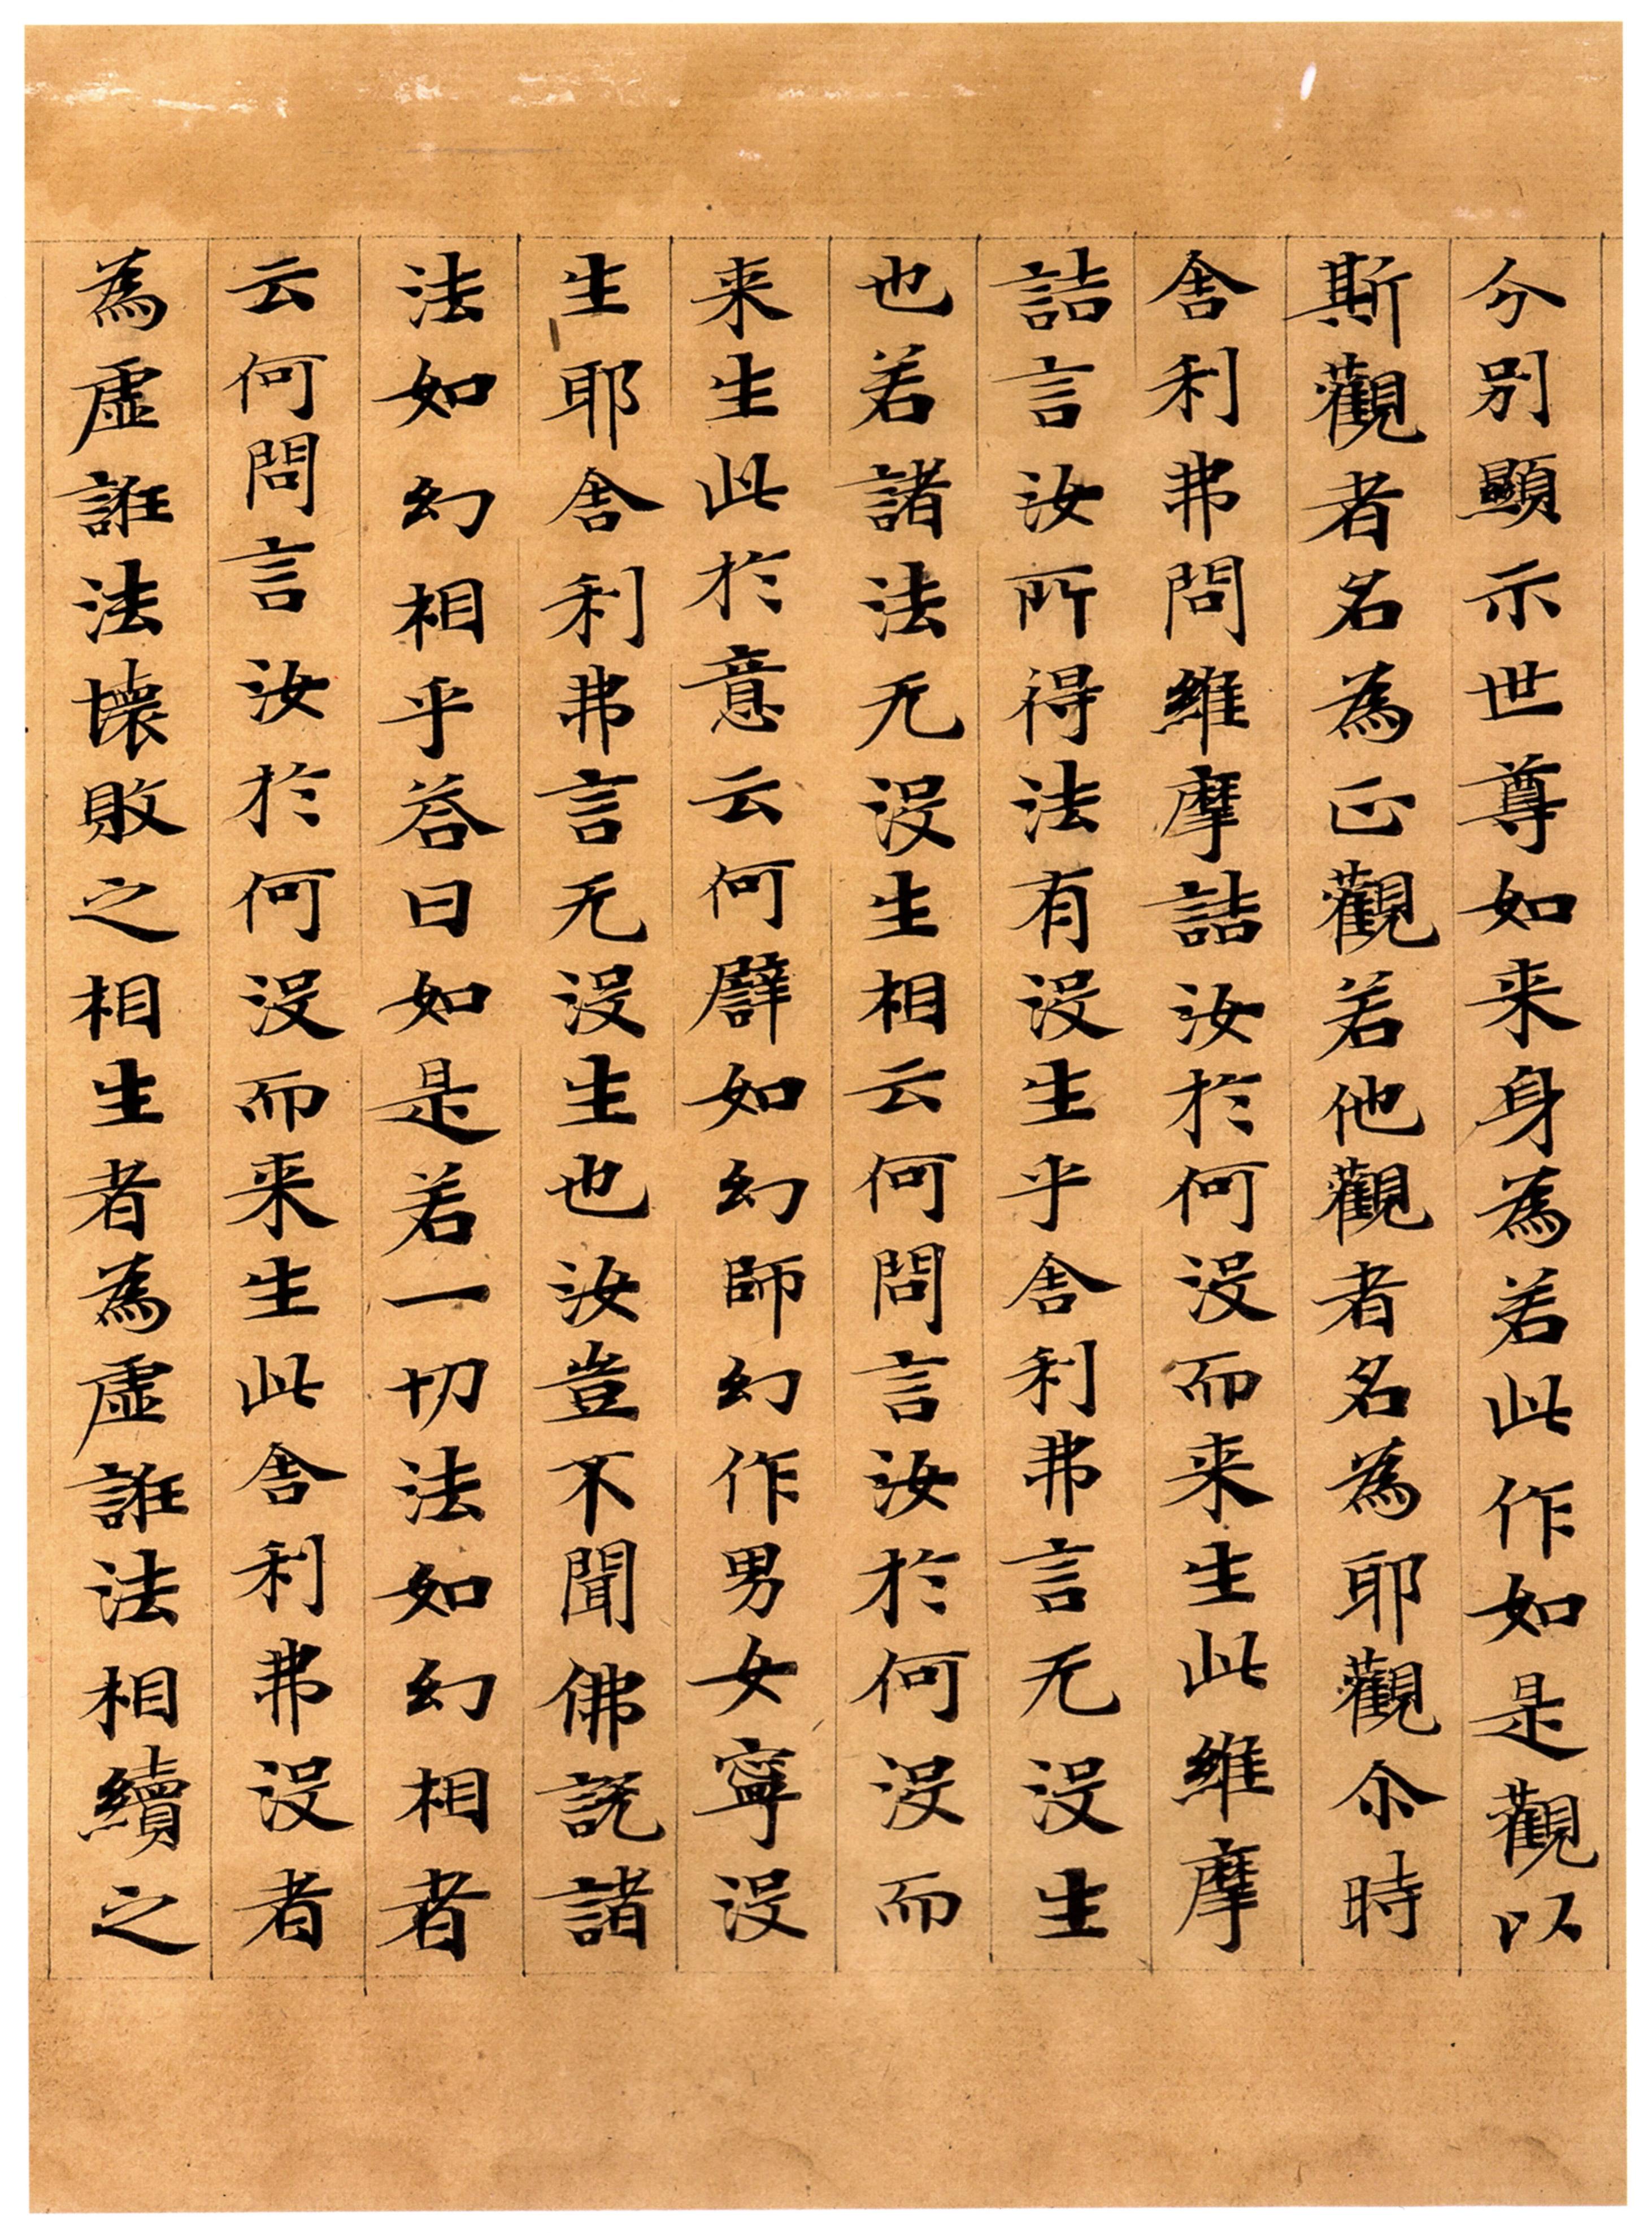 分别顯示世尊如来身為若此作如是觀以
斯觀者名為正觀若他觀者名為耶觀尒時
舎利弗問維摩詰汝於何没而来生此維摩
詰言汝所得法有没生乎舎利弗言无没生
也若諸法无没生相云何問言汝於何没而
来生此於意云何譬如幻師幻作男女寧没
生耶舎利弗言无没生也汝豈不聞佛說諸
法如幻相乎荅曰如是若一切法如幻相者
云何問言汝於何没而来生此舎利弗没者
為虛誑法壞敗之相生者為虛誑法相續之